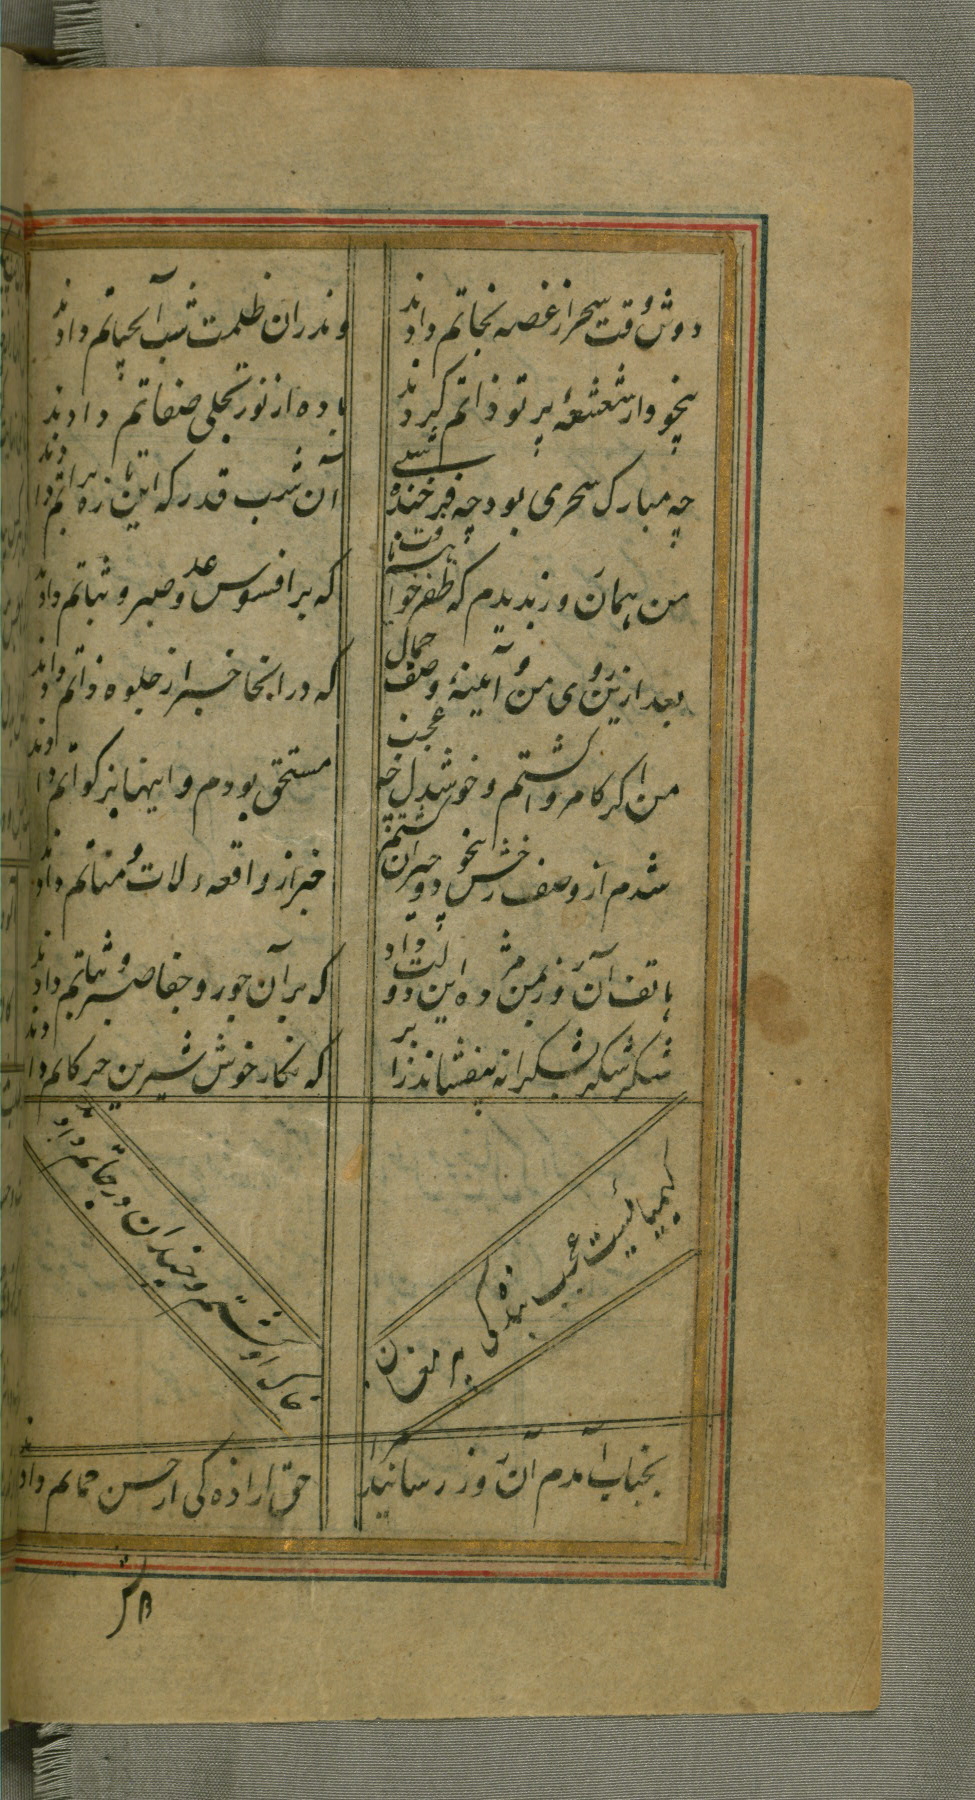 دوش وقت سحر از غصه نجاتم دادند
وندران ظلمت شب آبحیاتم دادند
بیخود از شعشعهٔ پرتو ذاتم کردند
باده از نور تجلی صفاتم دادند
چه مبارک سحری بود چه فرخنده شبے
آن شب قدر که این تازه براتم دادند
من همان روز بدیدم که ظفر خواهم یافت
که بر افسوس عدو صبر و ثباتم دادند
بعد ازین روی من و آینهٔ وصف جمال
که در انجا خبر از جلوه ذاتم دادند
من اگر کامروا گشتم و خوشدل چه عجب
مستحق بودم و اینها بزکواتم دادند
شدم از وصف رخش بیخود و حیران گشتم
خبر از واقعهء لات و مناتم دادند
هاتف آن روز بمن مژده این دولت داد
که بر آن جور و جفا صبر و ثباتم دادند
شکر شکر بشکرانه بیفشاند
که نکار خوش شیرین حرکاتم دادند
کیمیائیست عجب بنده گی پیر مغان
خاک او گشتم و چندان درجاتم دادند
بجناب آمدم آن روز رسانیدمرا
حق آزاده گی از حسن مماتم دادند